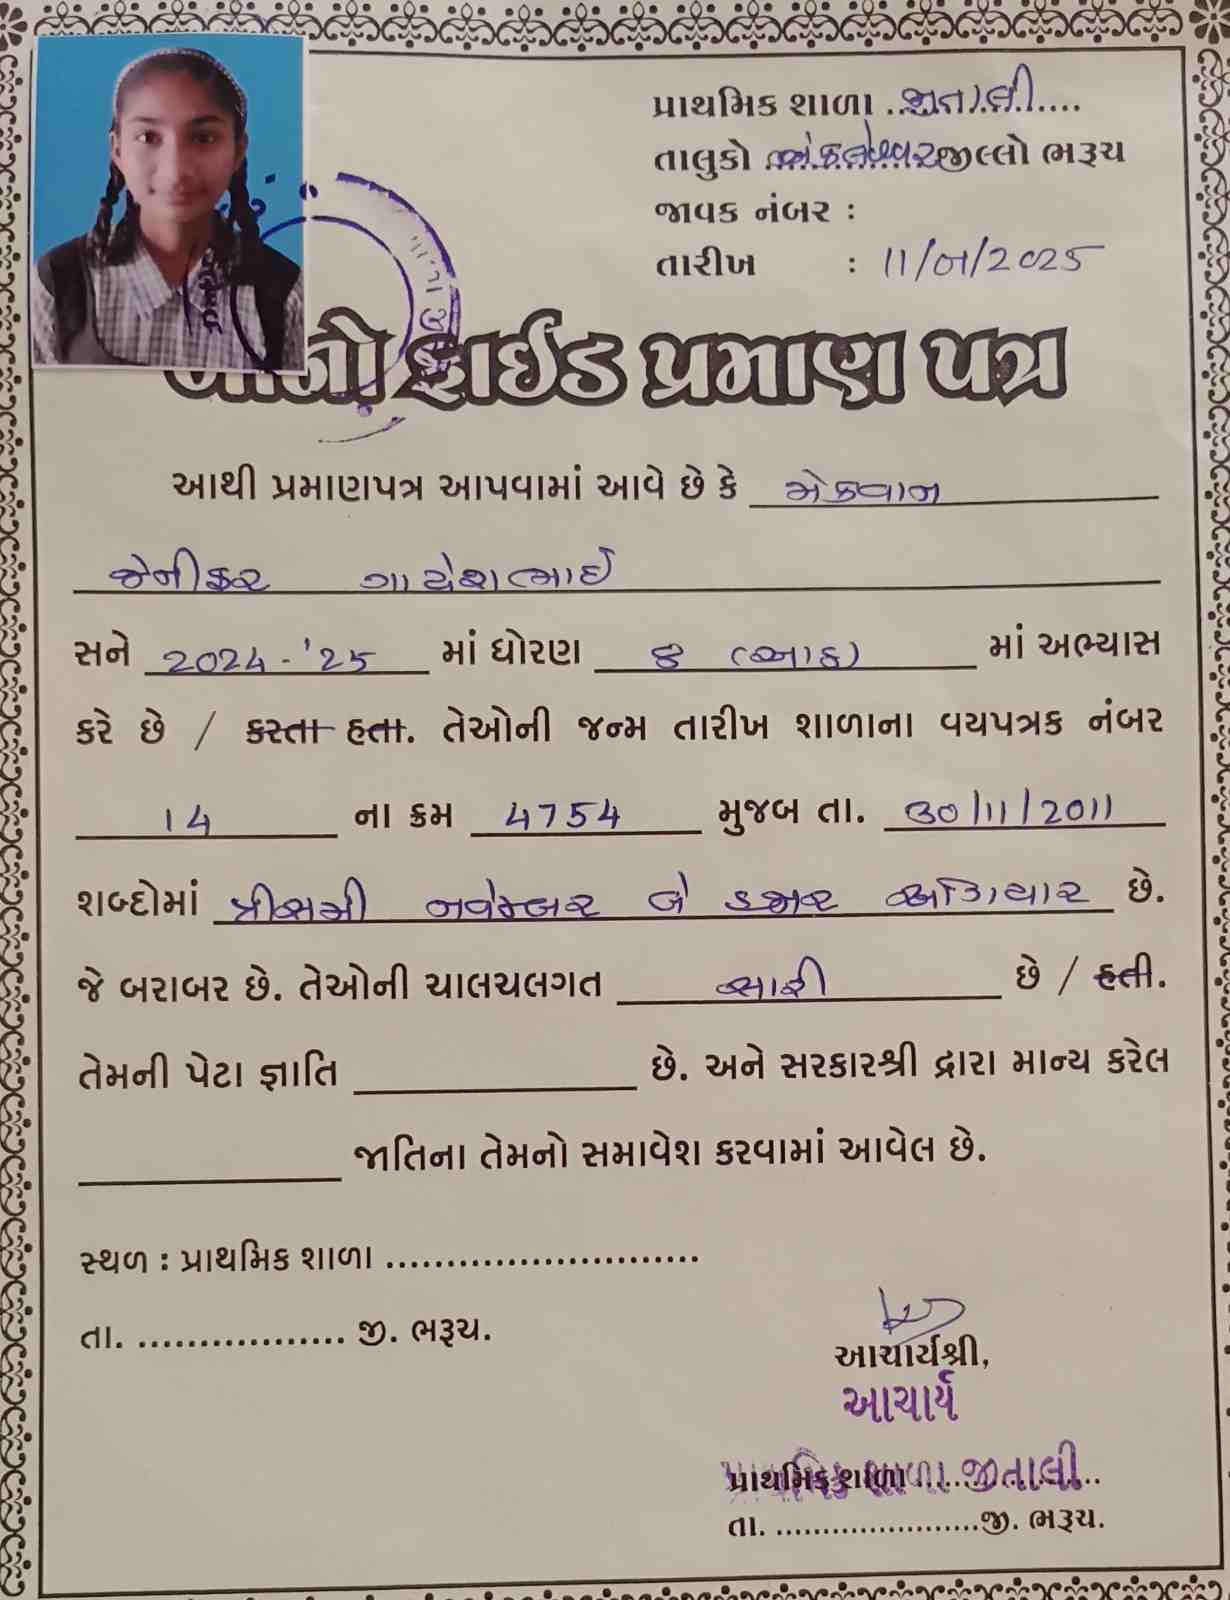 પ્રાથમિક શાળા ..જીતાલી....
તાલુકો અંકલેશ્વર જીલ્લો ભરૂચ
જાવક નંબર :
તારીખ : 11/01/2025
બોનો ફાઈડ પ્રમાણ પત્ર
આથી પ્રમાણપત્ર આપવામાં આવે છે કે મેકવાન
જેનીફર ગાયેશભાઈ
સને 2024-'25 માં ધોરણ ૮ (આઠ) માં અભ્યાસ
કરે છે / કરતા હતા. તેઓની જન્મ તારીખ શાળાના વયપત્રક નંબર
14 ના ક્રમ 4754 મુજબ તા. ૩૦/11/2011
શબ્દોમાં ત્રીસમી નવેમ્બર બે હજાર અગિયાર છે.
જે બરાબર છે. તેઓની ચાલચલગત સારી છે / હતી.
તેમની પેટા જ્ઞાતિ ____________ છે. અને સરકારશ્રી દ્વારા માન્ય કરેલ
____________ જાતિના તેમનો સમાવેશ કરવામાં આવેલ છે.
સ્થળ : પ્રાથમિક શાળા ..........................
તા. .................. જી. ભરૂચ.
આચાર્યશ્રી,
આચાર્ય
પ્રાથમિક શાળા જીતાલી
તા. ......................જી. ભરૂચ.